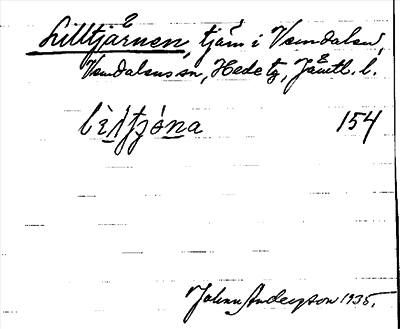 Lilltjärnen, tjärn i Vemdalen,
Vemdalens sn, Hede tg, Jämtl. l.
lìltjó̱na 154
Johan Anderzon 1935.